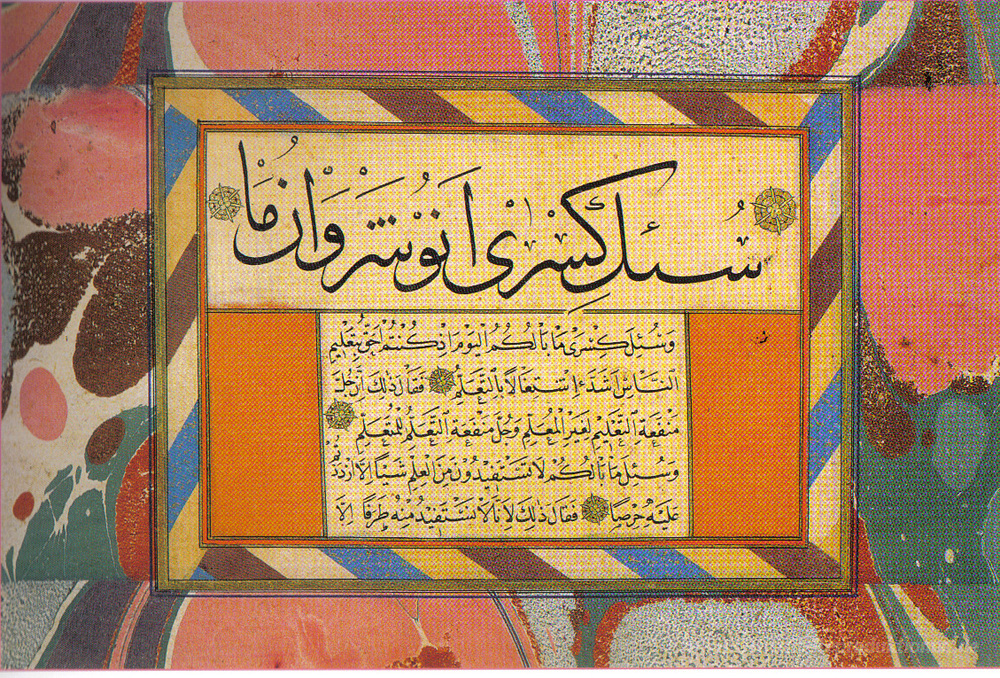 سُئِلَ كِسْرٰى اَنُوشَرْوَانُ مَا
وَسُئِلَ كِسْرٰى مَا بَالُكُمُ الْيَوْمَ اِذْ كُنْتُمْ اَحَقَّ بِتَعْلِيمِ
النَّاسِ اَشَدَّ اِشْتِغَالًا بِالتَّعَلُّمِ فَقَالَ ذٰلِكَ اَنَّ جُلَّ
مَنْفَعَةِ التَّعْلِيْمِ لِغَيْرِ الْمُعَلِّمِ وَجُلَّ مَنْفَعَةِ التَّعَلُّمِ لِلْمُتَعَلِّمِ
وَسُئِلَ مَا بَالُكُمْ لَا تَسْتَفِيْدُوْنَ مِنَ الْعِلْمِ شَيْأً اِلَّا ازْدَدْتُمْ
عَلَيْهِ حِرْصًا فَقَالَ ذٰلِكَ لِاَنَّا لَا نَسْتَفِيْدُ مِنْهُ طَرَفًا اِلَّا